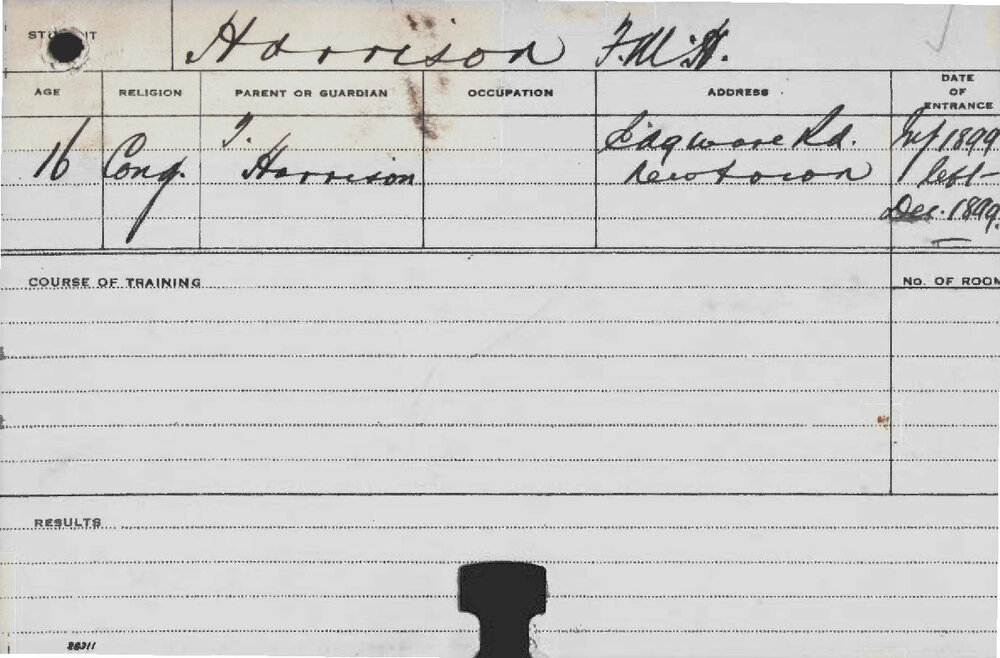 STUDENT Harrison F.M.H.
AGE RELIGION PARENT OR GUARDIAN OCCUPATION ADDRESS DATE OF ENTRANCE
16 Cong. T. Harrison Edgware Rd. Newtown 1899 left - Dec. 1899.
COURSE OF TRAINING No. OF ROOM
RESULTS
26311